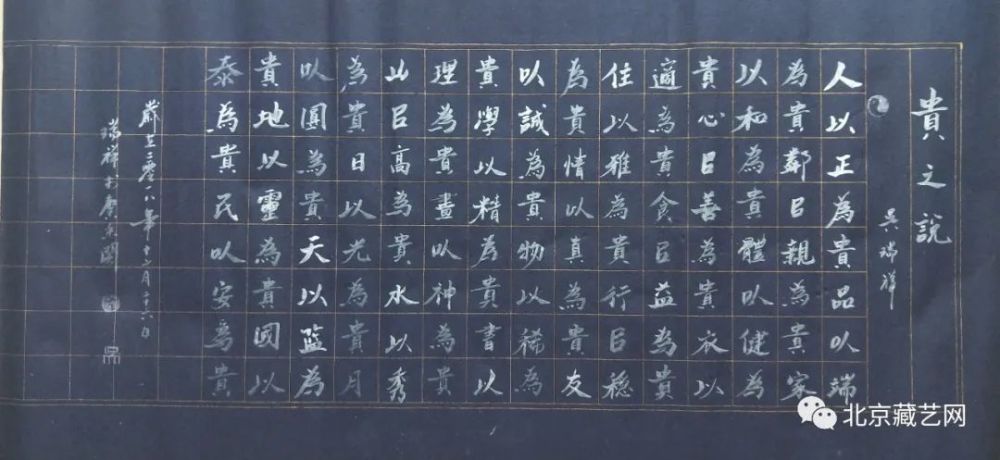 貴之說
吳瑞祥
人以正為貴品以端
為貴鄰㠯親為貴家
以和為貴體以健為
貴心㠯善為貴衣以
適為貴食㠯益為貴
住以雅為貴行㠯穩
為貴情以真為貴友
以誠為貴物以稀為
貴學以精為貴書以
理為貴畫以神為貴
山㠯高為貴水以秀
為貴日以光為貴月
以圓為貴天以藍為
貴地以靈為貴國以
泰為貴民以安為貴
二零一八年十二月二十六日
瑞祥
北京藏艺网